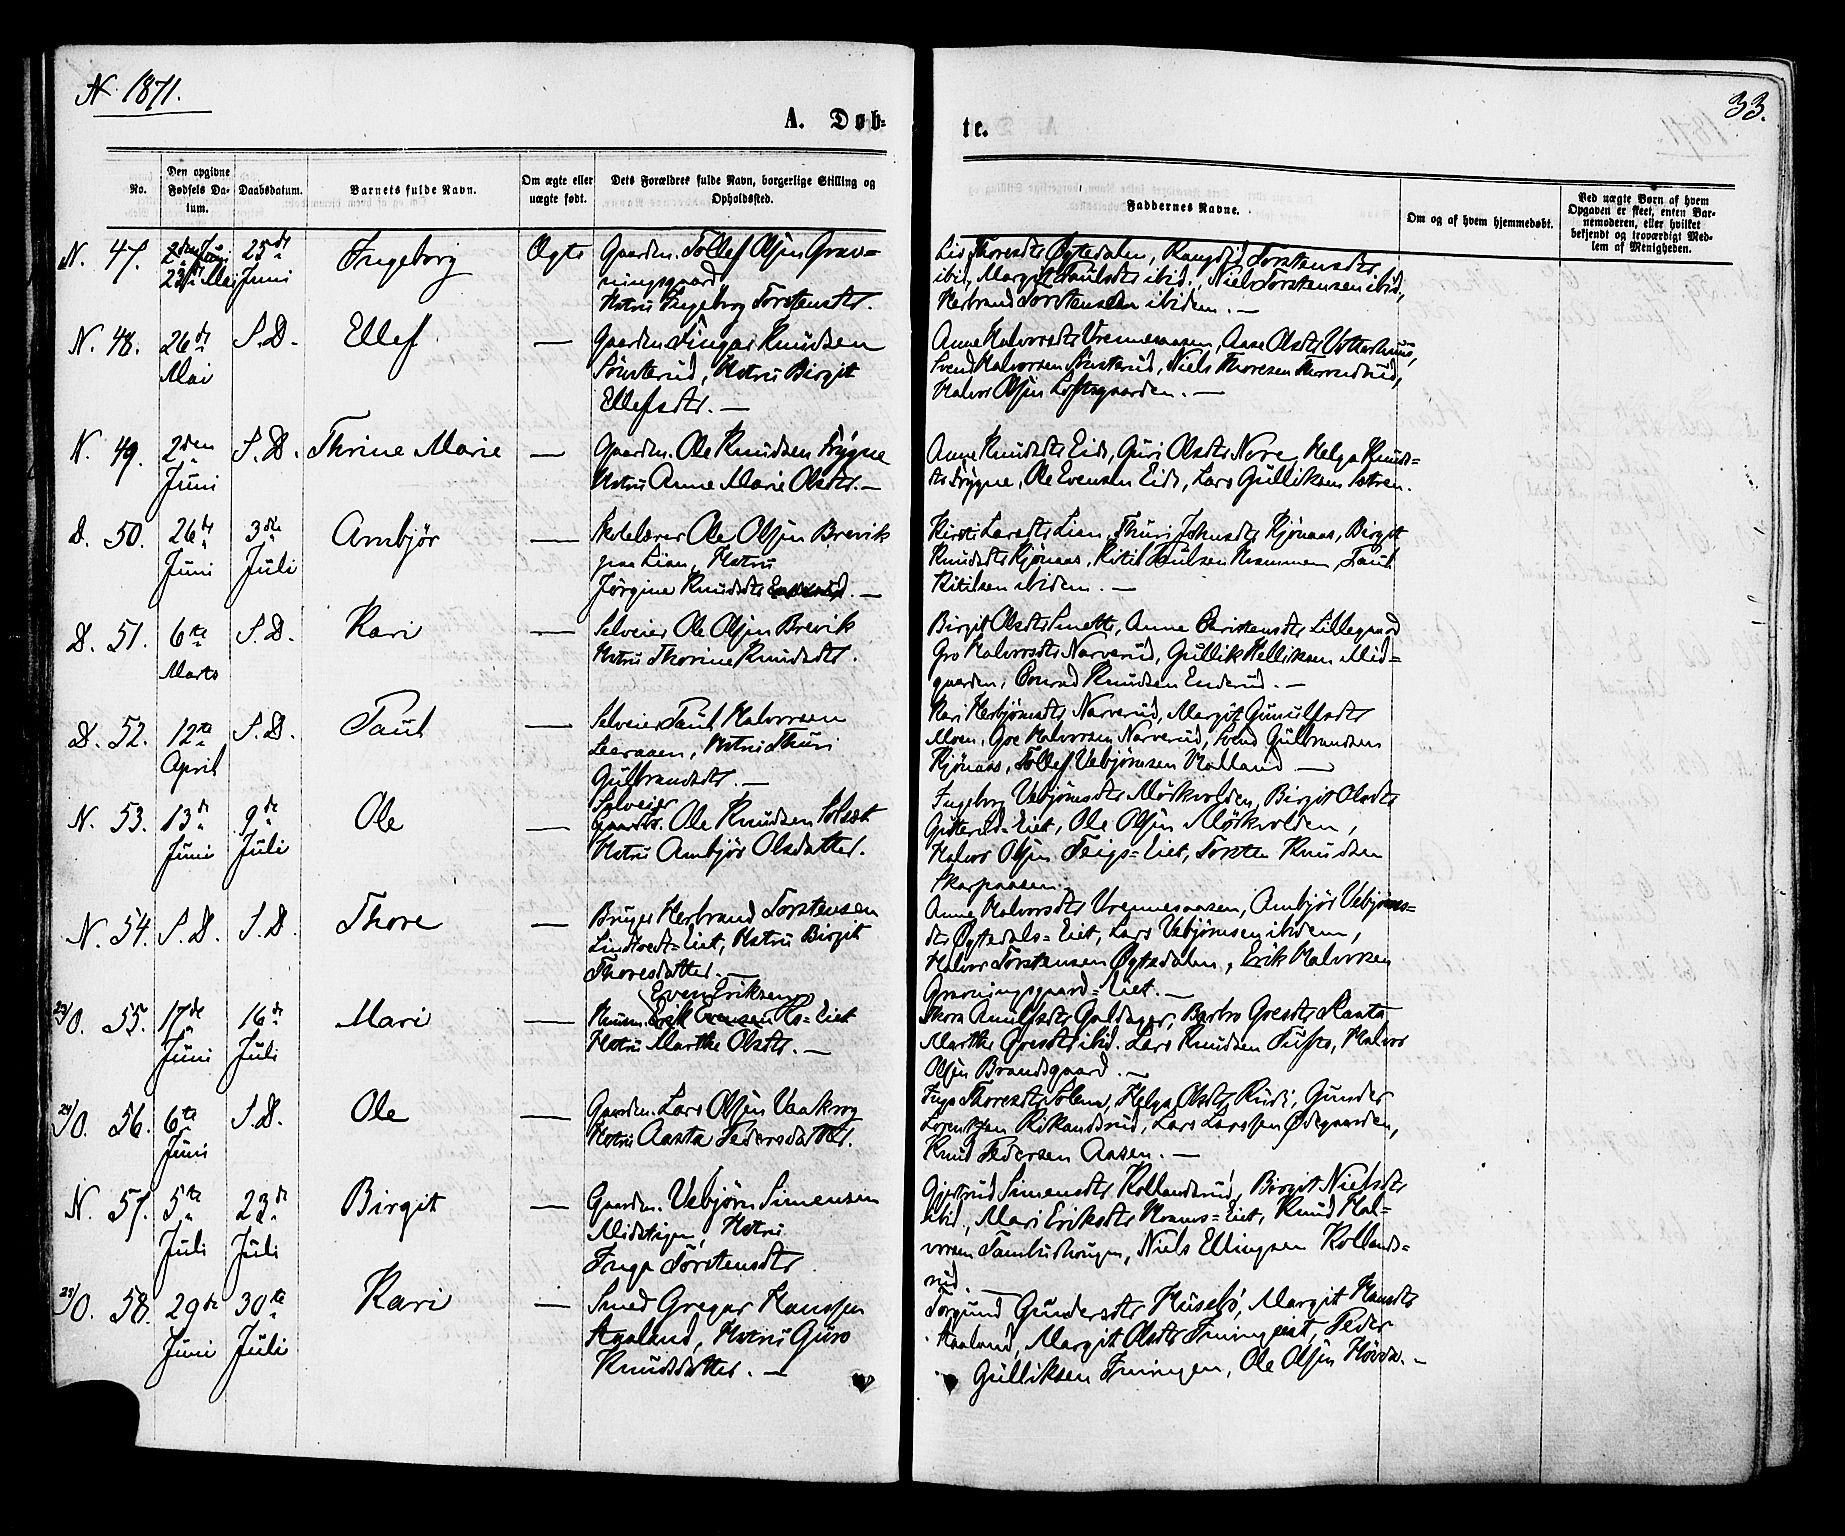 N. 1871.
33.
A. Døb-
te.
No.
Den opgivne Fødsels Da-tum.
Daabsdatum.
Barnets fulde Navn.
Om ægte eller uægte født.
Dets Forældres fulde Navn, borgerlige Stilling og Opholdssted.
Faddernes Navne.
Om og af hvem hjemmedøbt.
Ved uægte Børn af hvem Opgaven er skeet, enten Bar-nemoderen, eller hvilket bekjendt og troværdigt Med-lem af Menigheden.
N. 47. 23de Mai 25de Juni Ingeborg Ægte Gaardm. Tollef Olsen Grav-
ningsgaard
Hstru Ingeborg Torstensdtr.
Thoresdtr Øgtedalen, Torstensdtr
ibid, Margit ibid., Niels Torstensen ibid,
Herbrand Torstensen ibidem. —
N. 48. 26de Mai S.D. Ellef — Gaardm. Knudsen
Sønsterud, Hstru Birgit
Ellefsdtr. —
Anne Halvorsdtr Vrenneaasen, Aase Olsdtr
Svend Halvorsen Sønsterud, Niels Thoresen
Halvor Olsen Loftsgaarden. —
N. 49. 2den Juni S.D. Thrine Marie — Gaardm. Ole Knudsen Frygne
Hstru Anne Marie Olsdtr. —
Anne Knudsdtr Eide, Guri Olsdtr Nore, Helga Knuds-
dtr Frygne, Ole Evensen Eide, Lars Gulliksen
D. 50. 26de Juni 3die Juli Ambjør — Skolelærer Ole Olsen Brevik
paa Lien, Hstru
Jørgine Knudsdtr
Kirsti Larsdtr Lien, Thuri Johnsdtr Kjønaas, Birgit
Knudsdtr Kjønaas, Kittil Paulsen Krammen, Paul
Kittilsen ibidem. —
D. 51. 6te Marts S.D. Kari — Selveier Ole Olsen Brevik
Hstru Thorine Knudsdtr.
Birgit Olsdtr Anne Christensdtr Lillegaard
Gro Halvorsdtr Narverud, Gullik Helliksen Mid-
gaarden, Conrad Knudsen Enderud. —
D. 52. 12te April S.D. Paul — Selveier Paul Halvorsen
Hstru Thuri
Gulbrandsdtr. —
Kari Herbjørnsdtr Narverud, Margit Gunulfsdtr
Moen, Halvorsen Narverud, Svend Gulbrandsen
Kjønaas, Tollef Vebjørnsen Holland —
N. 53. 13de Juni 9de Juli Ole — Selveier
Ole Knudsen
Hstru Ambjør Olsdatter.
Ingeborg Vebjørnsdtr Mørkvolden, Birgit Olsdtr
Eiet, Ole Olsen Mørkvolden,
Halvor Olsen Teigs-Eiet, Torsten Knudsen
Skarpaasen.
N. 54. S.D. S.D. Thore — Bruger Herbrand Torstensen
Eiet, Hstru Birgit
Thoresdatter. —
Anne Halvorsdtr Vrenneaasen, Ambjør Vebjørns-
dtr Øgtedals-Eiet, Lars Vebjørnsen ibidem,
Halvor Torstensen Øgtedalen, Erik Halvorsen
Gravningsgaard-Eiet. —
O. 55. 17de Juni 16de Juli Mari — Even Eriksen
Huusm. Eiet
Hstru Marthe Olsdtr. —
Barbro
Marthe ibid. Lars Knudsen Halvor
Olsen Brandsgaard. —
O. 56. 6te Juni S.D. Ole — Gaardm. Lars Olsen Vaakrog
Hstru Aasta Pedersdatter.
Inga Thoresdtr Helga Olsdtr Rudi, Gunder
Lars Larssen Ødegaarden,
Knud Pedersen Aasen. —
N. 57. 5te Juli 23de Juli Birgit — Gaardm. Vebjørn Simensen
Midstigen, Hstru
Inga Torstensdtr.
Gjertrud Simensdtr Kollandsrud, Birgit Nielsdtr
ibid., Mari Eriksdtr Eiet, Knud Hal-
vorsen Niels Ellingsen Kollands-
rud —
O. 58. 29de Juni 30te Juli Kari — Smed Gregar Hanssen
Aaland, Hstru Guro
Knudsdatter. —
Torgund Gundersdtr Husebø, Margit Hansdtr
Margit Olsdtr Peder
Gulliksen Ole Olsen Hovde. —